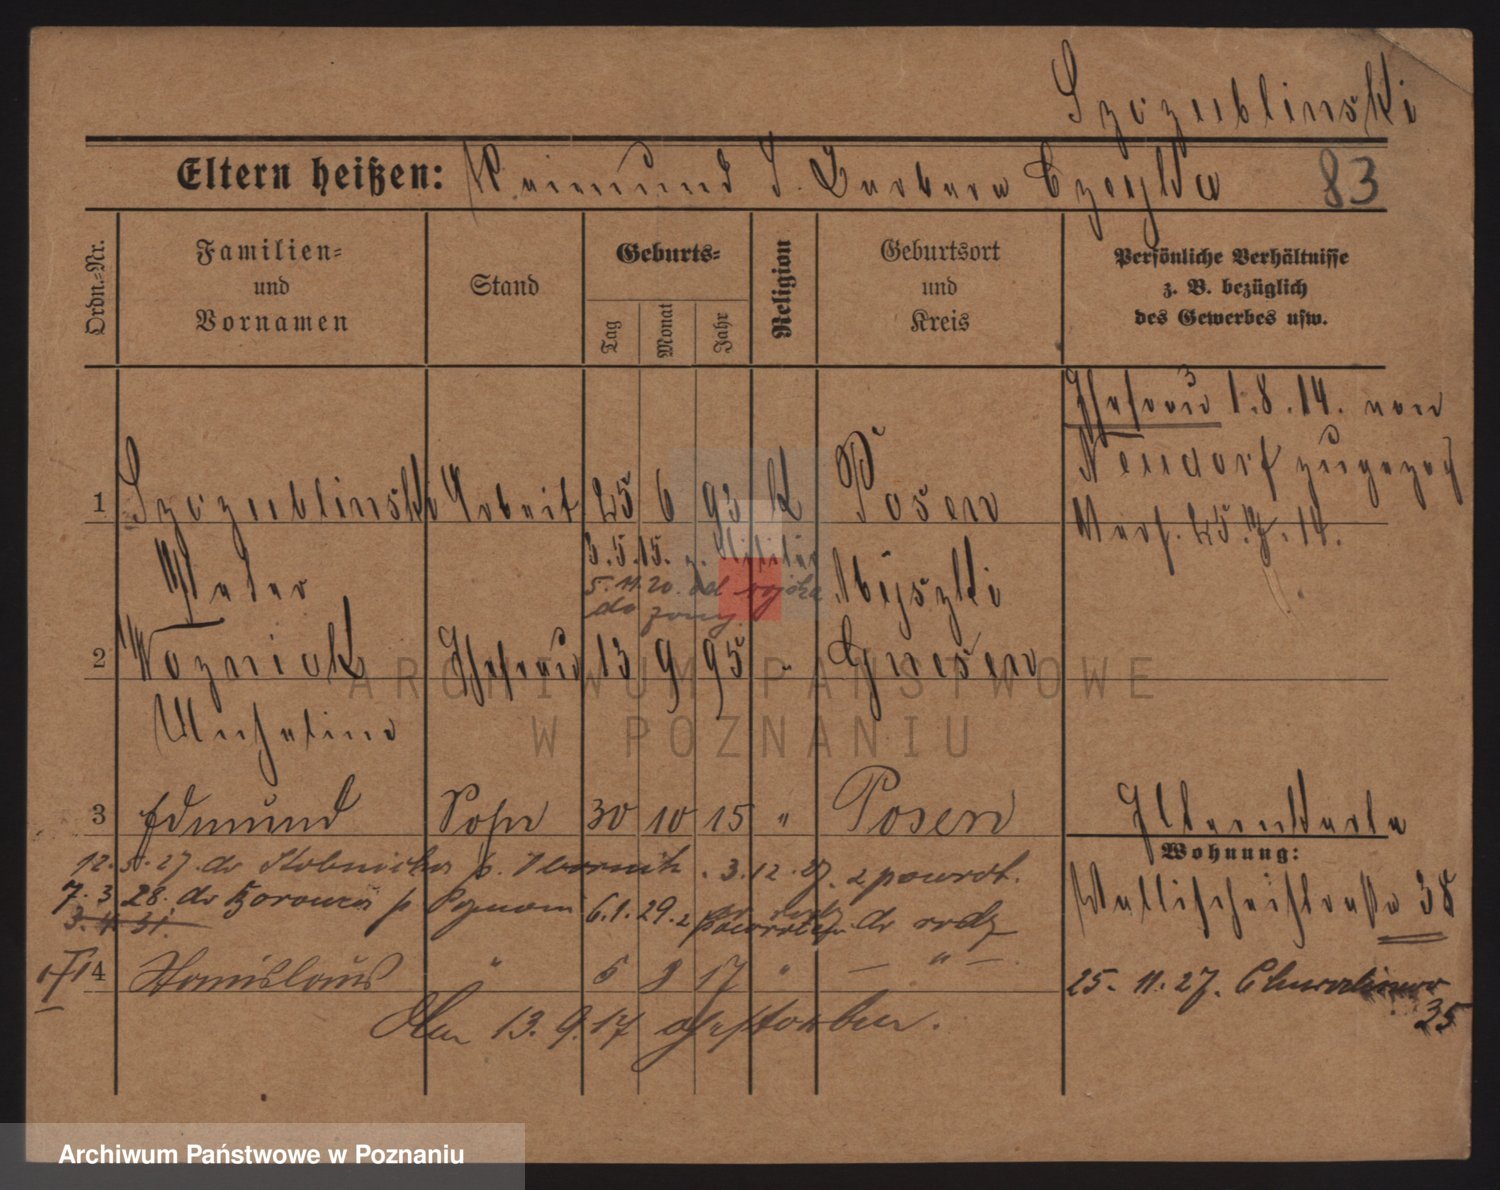 Szczublinski
Eltern heißen: Reimund S. Barbara Czaylka 83
Ordn.-Nr.
Familien-
und
Vornamen
Stand
Geburts-
Tag
Monat
Jahr
Religion
Geburtsort
und
Kreis
Persönliche Verhältnisse
z. B. bezüglich
des Gewerbes usw.
Ehefrau 3 1.8.14. von
Neudorf zugezog
1 Szczublinski Arbeit 25 6 93 K Posen
Verh. 25.7.14.
3.5.15. z. Militär
Peter
5.11.20. od wojska
do żony
2 Wozniak Ehefrau 13 9 95 " Gnesen
ARCHIWUM PAŃSTWOWE
W POZNANIU
3 Edmund Sohn 30 10 15 " Posen
Elternkarte
Wohnung:
Wallischeistraße 38
12. 27. do p. 3.12.27. z powrot.
7.3.28. do p Poznań 6.1.29. z do rodz
3.4.31.
4 Stanislaus " 5 8 17 " — " —.
25.11.27. Chwaliszewo
35
Am 13.9.17 gestorben.
Archiwum Państwowe w Poznaniu